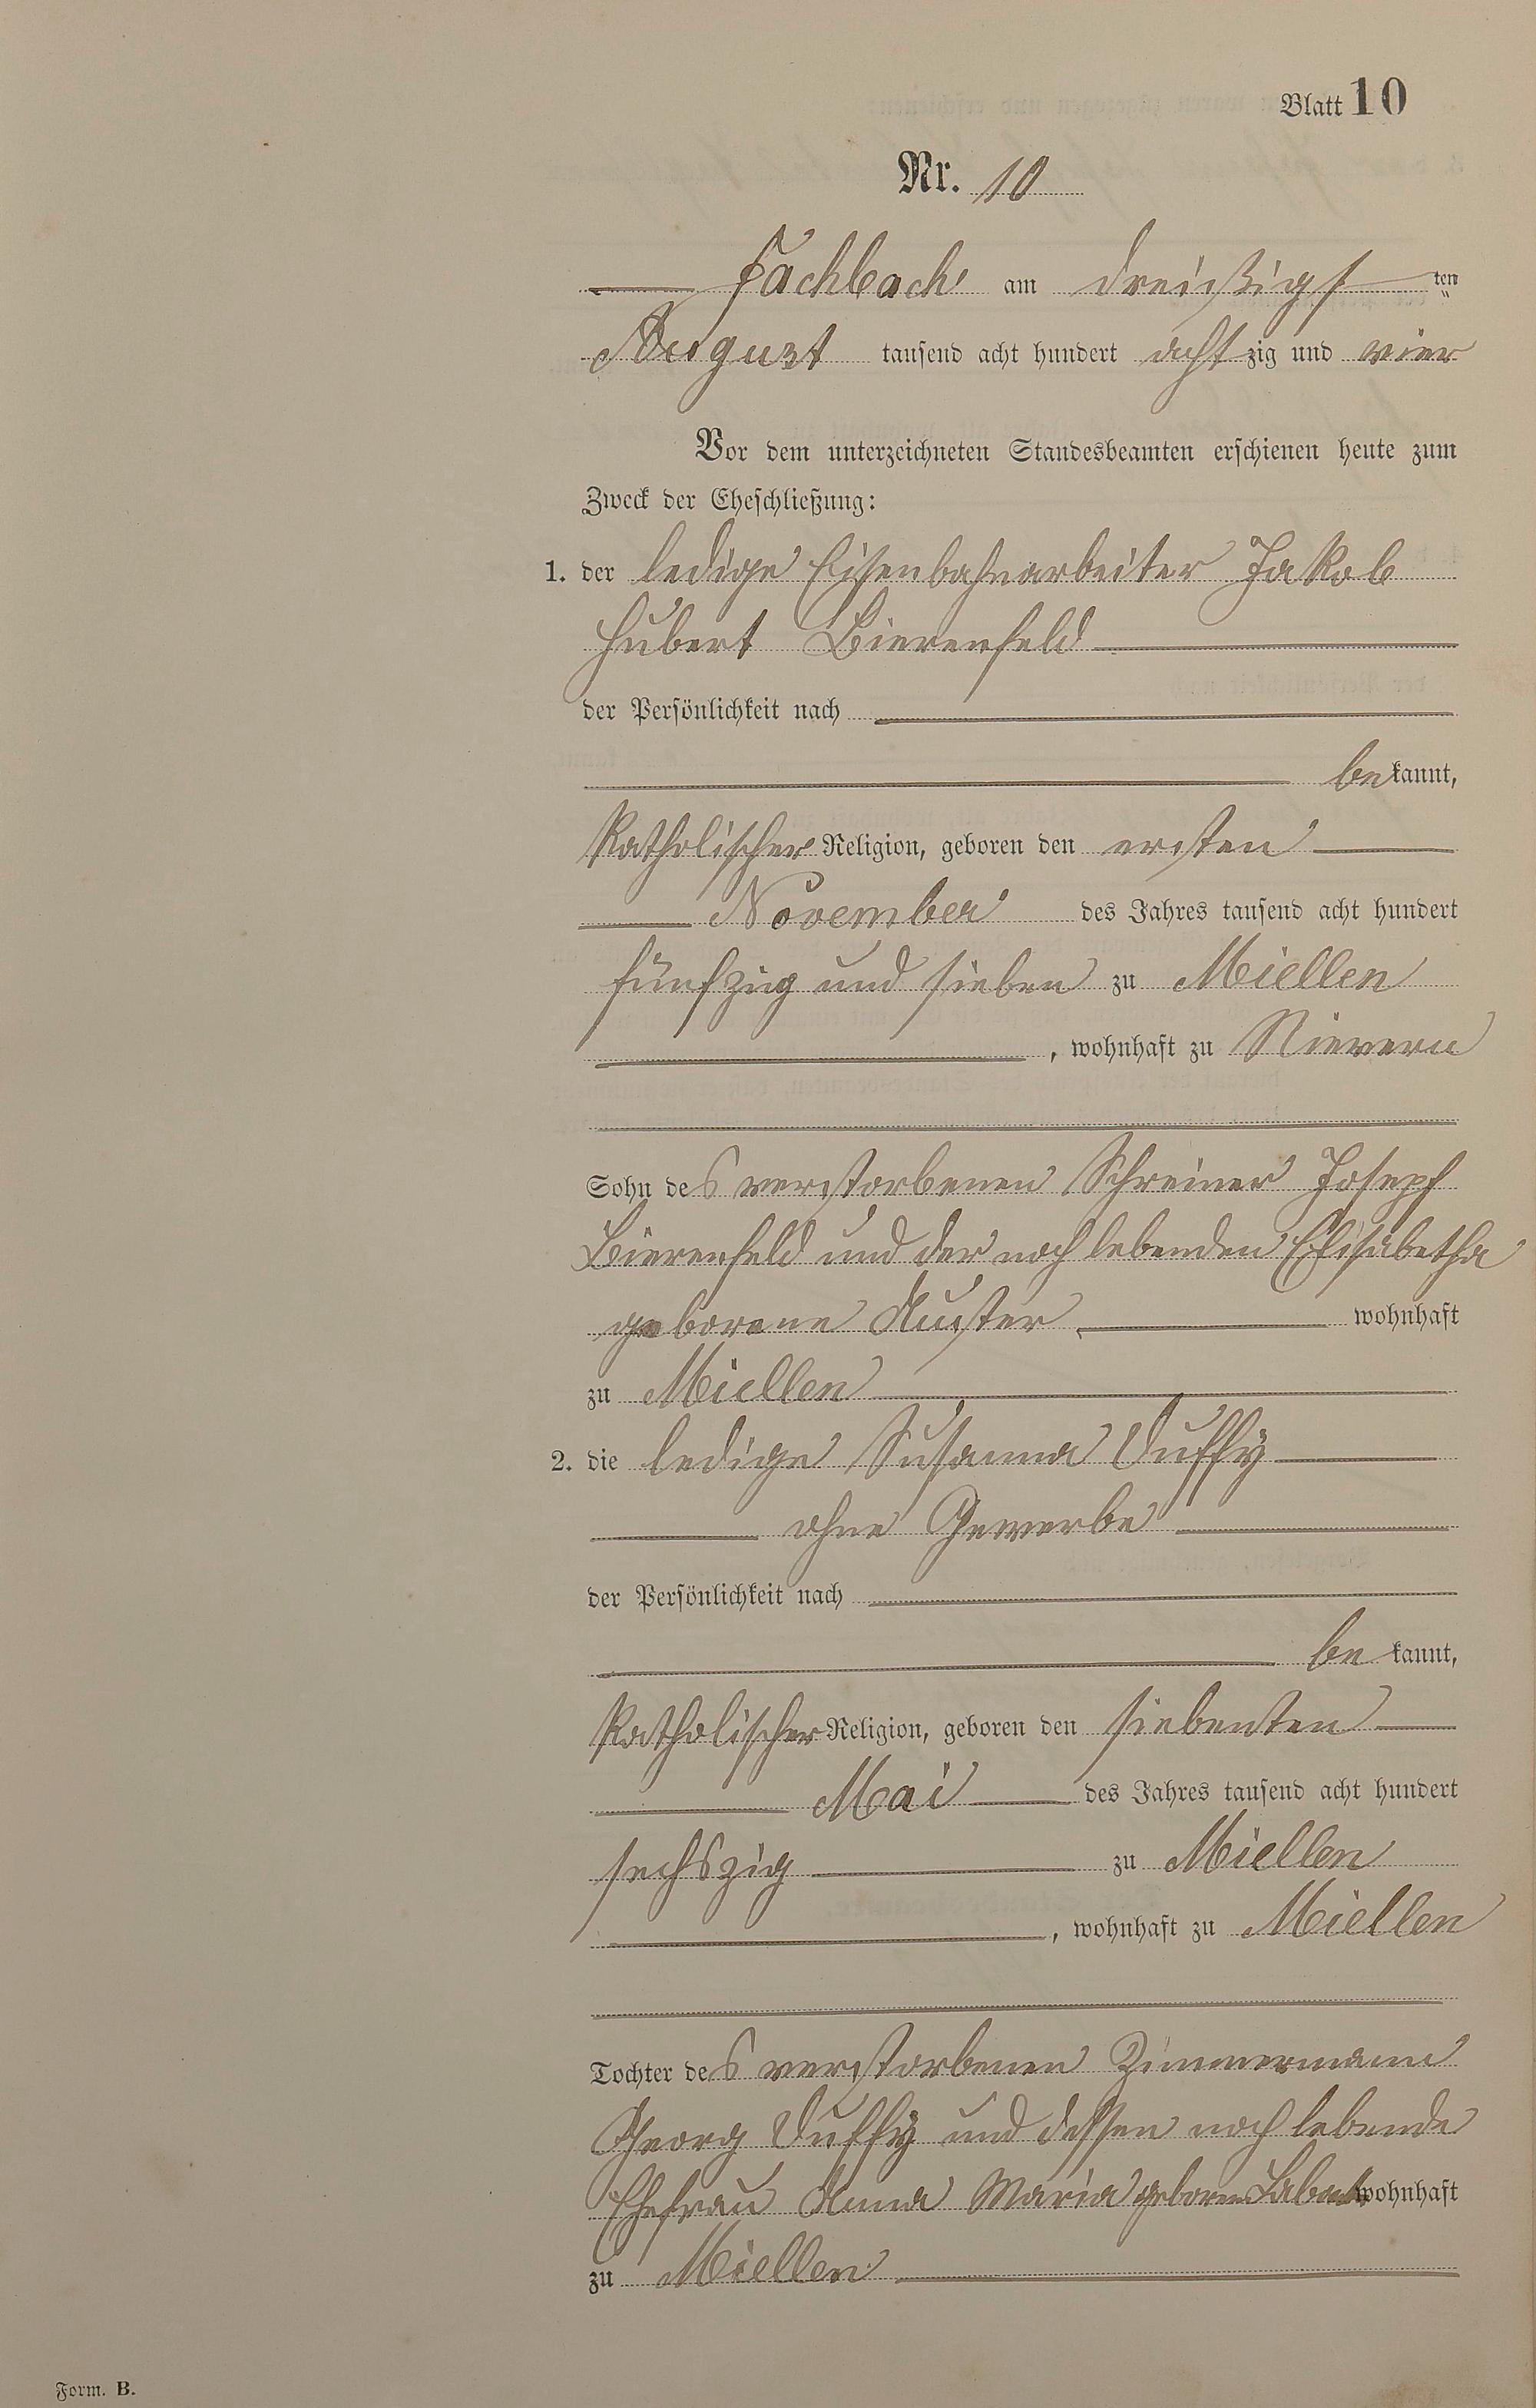 Blatt 10
Nr. 10
Fachbach am dreißigst ten
August tausend acht hundert achtzig und vier
Vor dem unterzeichneten Standesbeamten erschienen heute zum
Zweck der Eheschließung:
1. der ledige Eisenbahnarbeiter Jakob
Hubert Bierenfeld
der Persönlichkeit nach
bekannt,
Katholischer Religion, geboren den ersten
November des Jahres tausend acht hundert
fünfzig und sieben zu Miellen
, wohnhaft zu Nievern
Sohn des verstorbenen Schreiner Joseph
Bierenfeld und der noch lebenden Elisabetha
geborene Auster wohnhaft
zu Miellen
2. die ledige Susanna Duffy
ohne Gewerbe
der Persönlichkeit nach
bekannt,
Katholischer Religion, geboren den siebenten
Mai des Jahres tausend acht hundert
sechszig zu Miellen
, wohnhaft zu Miellen
Tochter des verstorbenen Zimmermann
Georg Duffy und dessen noch lebende
Ehefrau Anna Maria geborene wohnhaft
zu Miellen
Form. B.